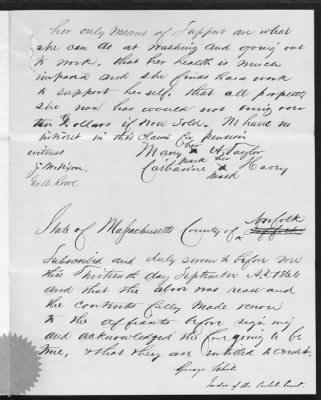 her only means of Support are what
she can do at washing and going out
to work, that her health is much
impared and she finds hard work
to support herself, that all property
she now has would not bring over
ten Dollars if Now Sold. We have no
interest in this Claim for pension
witness
Mary her x mark A Taylor
Catharine her x mark
Geo. A. Rowe
State of Massachusetts County of Norfolk
Subscribed and duly sworn to before me
this day September A.D. 186
and that the above was read and
the contents fully made known
to the affiants before signing
and acknowledged the foregoing to be
true, & that they are entitled to credit.
George White
Judge of the Probate Court.